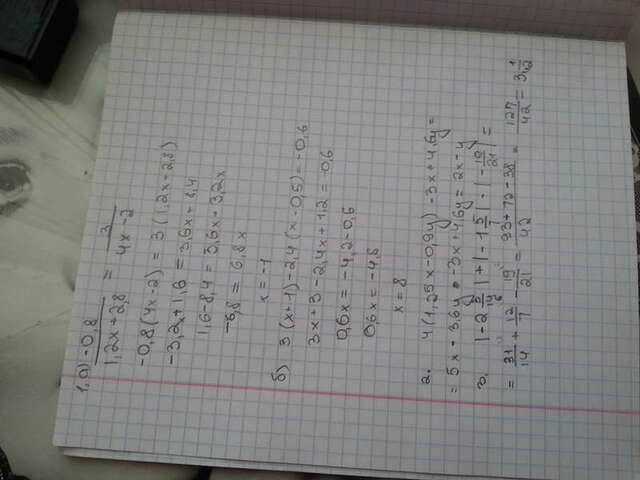 1. а) -0,8/(1,2x+2,8) = 3/(4x-2)
-0,8(4x-2) = 3(1,2x+2,8)
-3,2x+1,6 = 3,6x+8,4
1,6-8,4 = 3,6x+3,2x
-6,8 = 6,8x
x = -1
б) 3(x+1)-2,4(x-0,5) = -0,6
3x+3-2,4x+1,2 = -0,6
0,6x = -4,2-0,6
0,6x = -4,8
x = 8
2. 4(1,25x-0,9y)-3x+4,6y =
= 5x-3,6y-3x+4,6y = 2x-y
= 31/14 + 12/7 - 19/21 = (93+72-38)/42 = 127/42 = 3 1/42